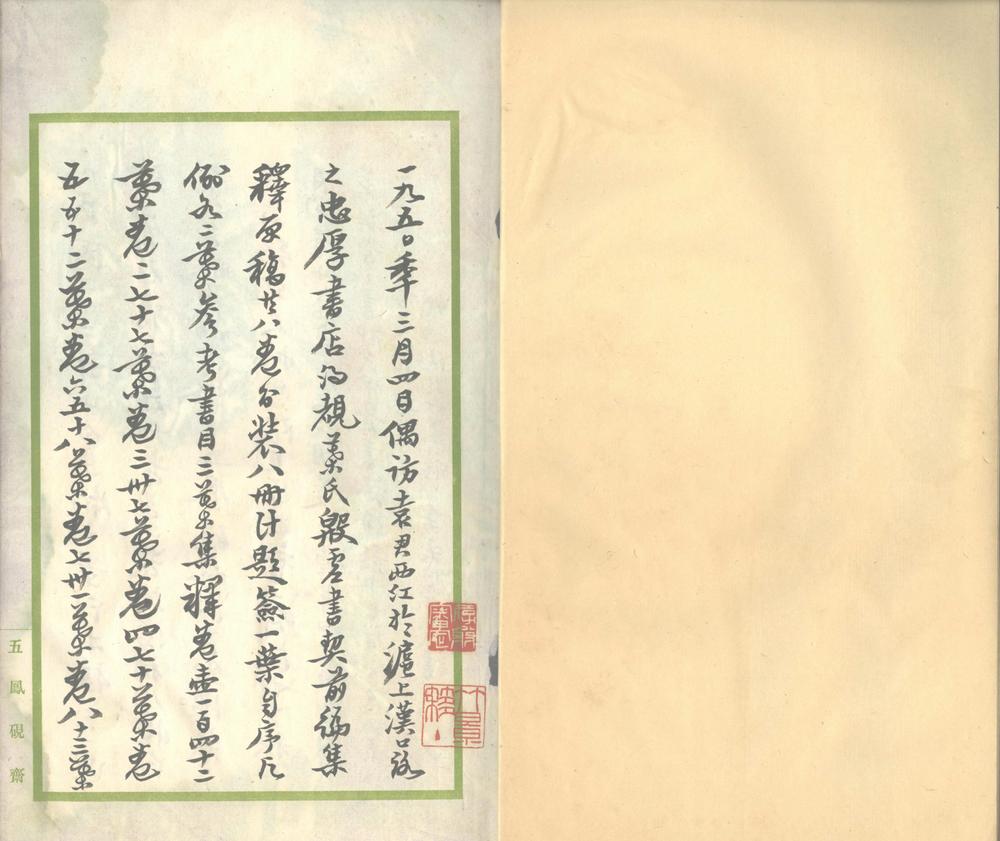 一九五〇季三月四日偶访袁君西江於滬上漢口路
之忠厚書店得覩葉氏殷虛書契前編集
釋原稿共八卷分裝八冊計題簽一葉自序凡
例各二葉參考書目三葉集釋卷壹一百四十二
葉卷二七十七葉卷三卅七葉卷四七十葉卷
五五十二葉卷六五十八葉卷七卅一葉卷八十三葉
五鳳硯齋